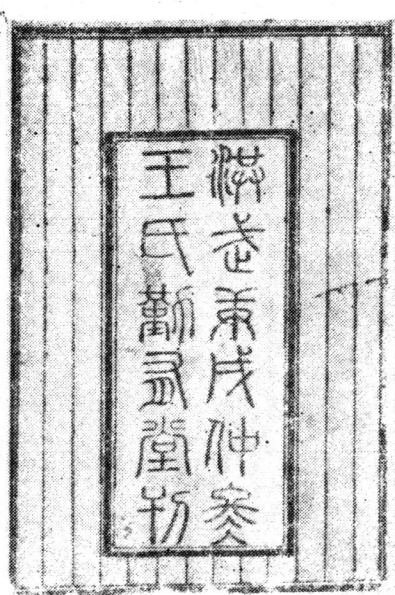 洪武庚戌仲冬
王氏勤有堂刊